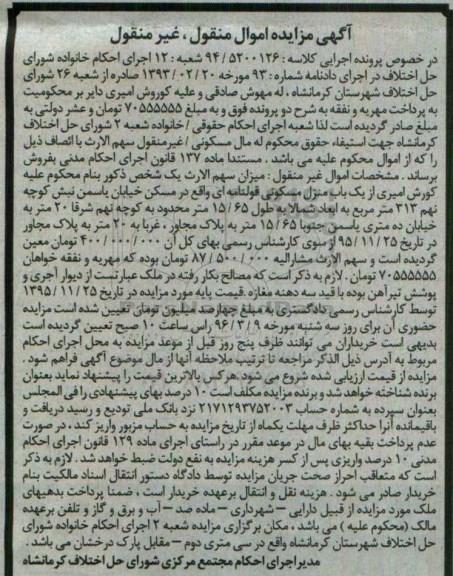 آگهی مزایده اموال منقول ، غیر منقول
در خصوص پرونده اجرایی کلاسه : ۹۴/۵۲۰۰۱۲۶ شعبه : ۱۲ اجرای احکام خانواده شورای
حل اختلاف در اجرای دادنامه شماره : ۹۳ مورخه ۱۳۹۳/۰۲/۲۰ صادره از شعبه ۲۶ شورای
حل اختلاف شهرستان کرمانشاه ، له مهوش صادقی و علیه کوروش امیری دایر بر محکومیت
به پرداخت مهریه و نفقه به شرح دو پرونده فوق و به مبلغ ۷۰۵۵۵۵۵۵ تومان و عشر دولتی به
مبلغ صادر گردیده است لذا شعبه اجرای احکام حقوقی / خانواده شعبه ۲ شورای حل اختلاف
کرمانشاه جهت استیفاء حقوق محکوم له مال مسکونی / غیرمنقول سهم الارث با اتصاف ذیل
را که از اموال محکوم علیه می باشد . مستندا ماده ۱۳۷ قانون اجرای احکام مدنی بفروش
برساند . مشخصات اموال غیر منقول : میزان سهم الارث یک شخص ذکور بنام محکوم علیه
کورش امیری از یک باب منزل مسکونی قولنامه ای واقع در مسکن خیابان یاسمن نبش کوچه
نهم ۳۱۳ متر مربع به ابعاد شمالا به طول ۱۵/۶۵ متر محدود به کوچه نهم شرقا ۲۰ متر به
خیابان ده متری یاسمن جنوبا ۱۵/۶۵ متر به پلاک مجاور ، غربا به ۲۰ متر به پلاک مجاور
در تاریخ ۹۵/۱۱/۲۵ از سوی کارشناس رسمی بهای کل آن ۴۰۰/۰۰۰/۰۰۰ تومان معین
گردیده است و سهم الارث مشارالیه ۸۷/۵۰۰/۰۰۰ تومان بوده که مهریه و نفقه خواهان
۷۰۵۵۵۵۵۵ تومان . لازم به ذکر است که مصالح بکار رفته در ملک عبارتست از دیوار آجری و
پوشش تیرآهن بوده با قید سه دهنه مغازه .قیمت پایه مورد مزایده در تاریخ ۱۳۹۵/۱۱/۲۵
توسط کارشناس رسمی دادگستری به مبلغ چهارصد میلیون تومان تعیین شده است مزایده
حضوری آن برای روز سه شنبه مورخه ۹۶/۳/۹ راس ساعت ۱۰ صبح تعیین گردیده است
بدیهی است خریداران می توانند ظرف پنج روز قبل از موعد مزایده به محل اجرای احکام
مربوط به آدرس ذیل الذکر مراجعه تا ترتیب ملاحظه آنها از مال موضوع آگهی فراهم شود .
مزایده از قیمت ارزیابی شده شروع می شود .هرکس بالاترین قیمت را پیشنهاد نماید بعنوان
برنده شناخته خواهد شد و برنده مزایده مکلف است ۱۰ درصد بهای پیشنهادی را فی المجلس
بعنوان سپرده به شماره حساب ۲۱۷۱۲۹۳۷۵۲۰۰۳ نزد بانک ملی تودیع و رسید دریافت و
باقیمانده آنرا حداکثر ظرف مهلت یکماه از تاریخ مزایده به حساب مزبور واریز کند ، در صورت
عدم پرداخت بقیه بهای مال در موعد مقرر در راستای اجرای ماده ۱۲۹ قانون اجرای احکام
مدنی ۱۰ درصد واریزی پس از کسر هزینه مزایده به نفع دولت ضبط خواهد شد . لازم به ذکر
است که متعاقب احراز صحت جریان مزایده توسط دادگاه دستور انتقال اسناد مالکیت بنام
خریدار صادر می شود . هزینه نقل و انتقال برعهده خریدار است ، ضمنا پرداخت بدهیهای
ملک مورد مزایده از قبیل دارایی – شهرداری – ماده صد – آب و برق و گاز و تلفن برعهده
مالک (محکوم علیه ) می باشد ، مکان برگزاری مزایده شعبه ۲ اجرای احکام خانواده شورای
حل اختلاف شهرستان کرمانشاه واقع در سی متری دوم – مقابل پارک درخشان می باشد .
مدیراجرای احکام مجتمع مرکزی شورای حل اختلاف کرمانشاه